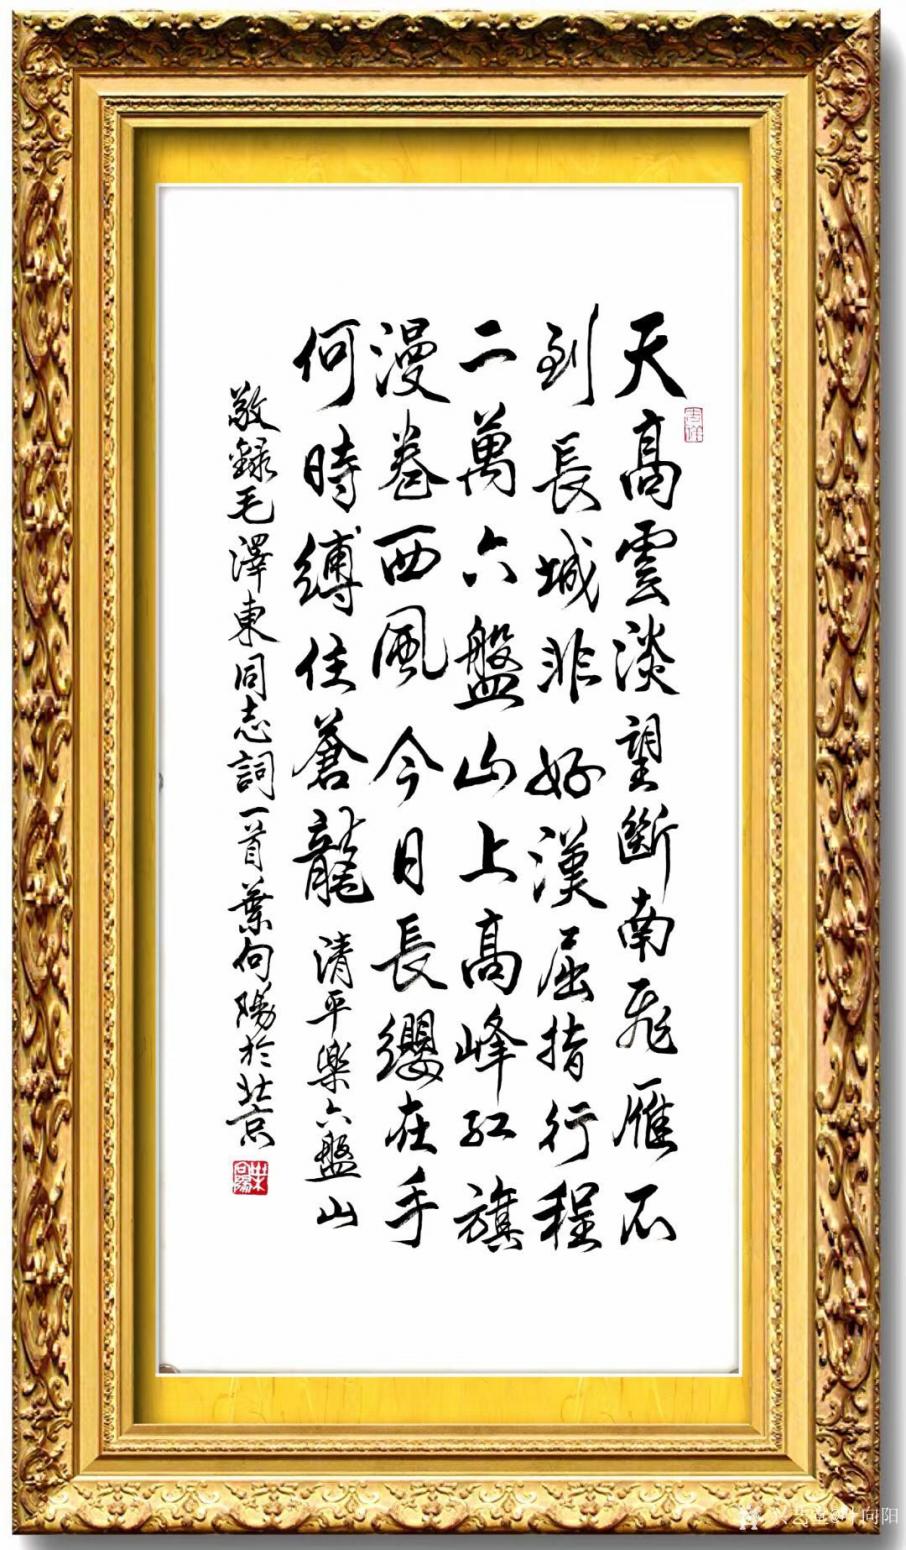 天高雲淡望斷南飛雁不
到長城非好漢屈指行程
二萬六盤山上高峰紅旗
漫卷西風今日長纓在手
何時縛住蒼龍 清平樂六盤山
敬錄毛澤東同志詞一首葉向陽於北京
葉向陽